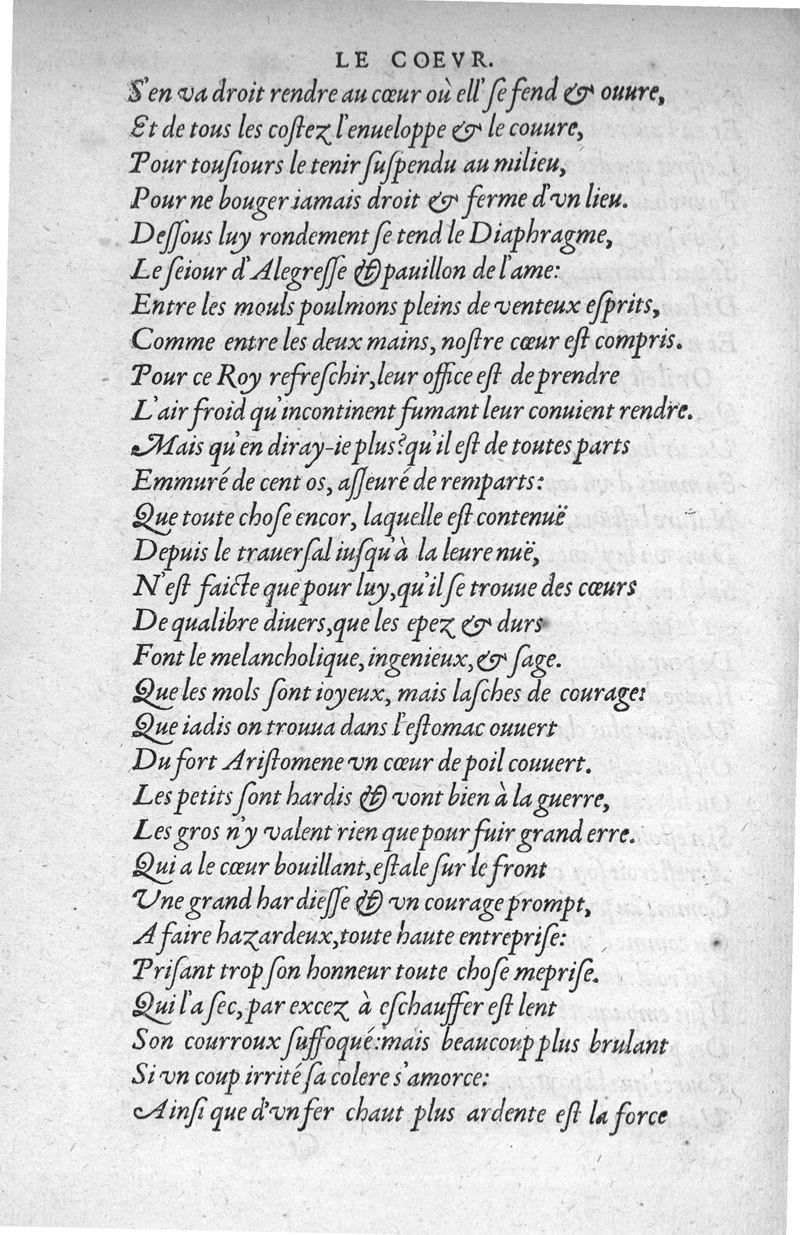 LE COEVR.
S'en va droit rendre au cœur où ell' ſe fend & ouure,
Et de tous les coſtez l'enueloppe & le couure,
Pour touſiours le tenir ſuſpendu au milieu,
Pour ne bouger iamais droit & ferme d'vn lieu.
Deſſous luy rondement ſe tend le Diaphragme,
Le ſeiour d'Alegreſſe & pauillon de l'ame:
Entre les mouls poulmons pleins de venteux eſprits,
Comme entre les deux mains, noſtre cœur eſt compris.
Pour ce Roy refreſchir, leur office eſt de prendre
L'air froid qu'incontinent fumant leur conuient rendre.
Mais qu'en diray-ie plus? qu'il eſt de toutes parts
Emmuré de cent os, aſſeuré de remparts:
Que toute choſe encor, laquelle eſt contenuë
Depuis le trauerſal iuſqu'à la leure nuë,
N'eſt faicte que pour luy, qu'il ſe trouue des cœurs
De qualibre diuers, que les epez & durs
Font le melancholique, ingenieux, & ſage.
Que les mols ſont ioyeux, mais laſches de courage:
Que iadis on trouua dans l'eſtomac ouuert
Du fort Ariſtomene vn cœur de poil couuert.
Les petits ſont hardis & vont bien à la guerre,
Les gros n'y valent rien que pour fuir grand erre.
Qui a le cœur bouillant, eſtale ſur le front
Vne grand hardieſſe & vn courage prompt,
A faire hazardeux, toute haute entrepriſe:
Priſant trop ſon honneur toute choſe mepriſe.
Qui l'a ſec, par excez à eſchauffer eſt lent
Son courroux ſuffoqué: mais beaucoup plus brulant
Si vn coup irrité ſa colere s'amorce:
Ainſi que d'vn fer chaut plus ardente eſt la force